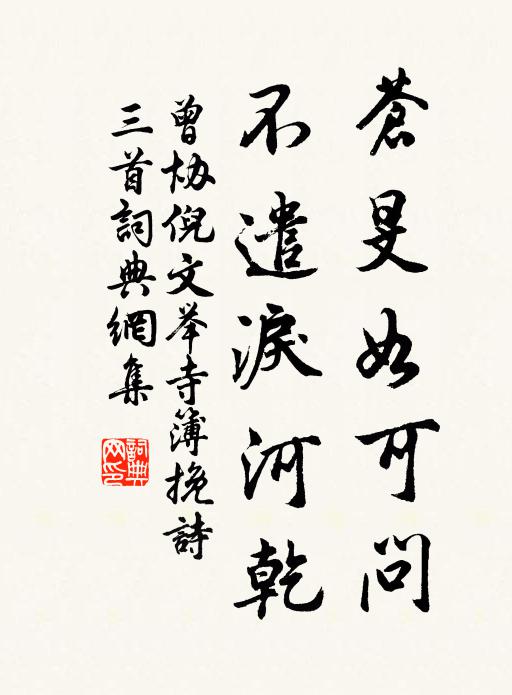 蒼旻如可問
不遣淚河乾
曾协倪文举寺簿挽詩
三首詞典網集
詞典網印